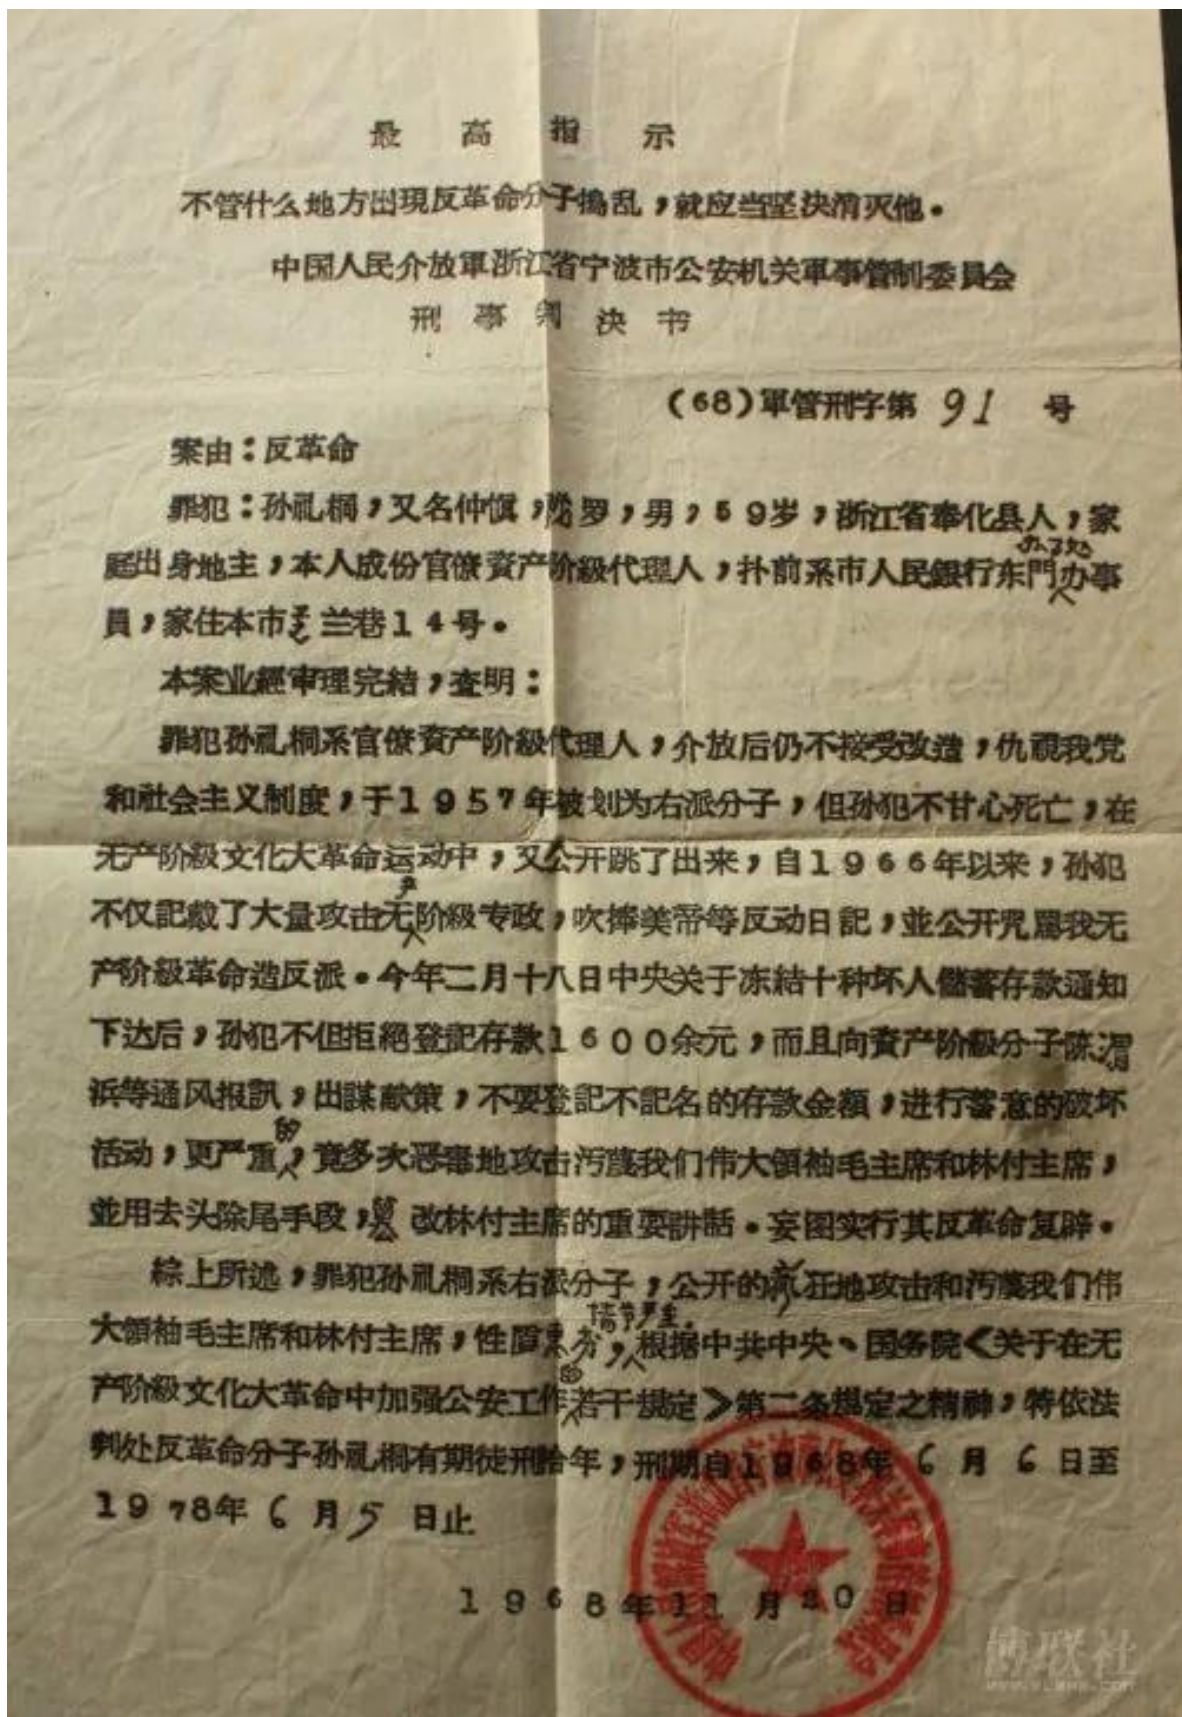 最高指示
不管什么地方出現反革命分子搗乱，就应当坚决消灭他。
中国人民介放軍浙江省宁波市公安机关軍事管制委員会
刑事判决书
(68)軍管刑字第 91 号
案由：反革命
罪犯：孙礼桐，又名仲慎，男，59岁，浙江省奉化县人，家
庭出身地主，本人成份官僚資产阶級代理人，扑前系市人民銀行东門办事
員，家住本市兰巷14号。
本案业經审理完結，查明：
罪犯孙礼桐系官僚資产阶級代理人，介放后仍不接受改造，仇視我党
和社会主义制度，于1957年被划为右派分子，但孙犯不甘心死亡，在
无产阶級文化大革命运动中，又公开跳了出来，自1966年以来，孙犯
不仅記載了大量攻击无产阶級专政，吹捧美帝等反动日記，並公开咒罵我无
产阶級革命造反派。今年二月十八日中央关于冻結十种坏人儲蓄存款通知
下达后，孙犯不但拒絕登記存款1600余元，而且向資产阶級分子陈渭
浜等通风报訊，出謀献策，不要登記不記名的存款金額，进行蓄意的破坏
活动，更严重的，竟多次恶毒地攻击汚蔑我们伟大領袖毛主席和林付主席，
並用去头除尾手段，改林付主席的重要讲話。妄图实行其反革命复辟。
綜上所述，罪犯孙礼桐系右派分子，公开的疯狂地攻击和汚蔑我们伟
大領袖毛主席和林付主席，性质，情节严重。根据中共中央、国务院《关于在无
产阶級文化大革命中加强公安工作的若干規定》第二条規定之精神，特依法
判处反革命分子孙礼桐有期徒刑拾年，刑期自1968年6月6日至
1978年6月5日止
1968年11月30日
博联社